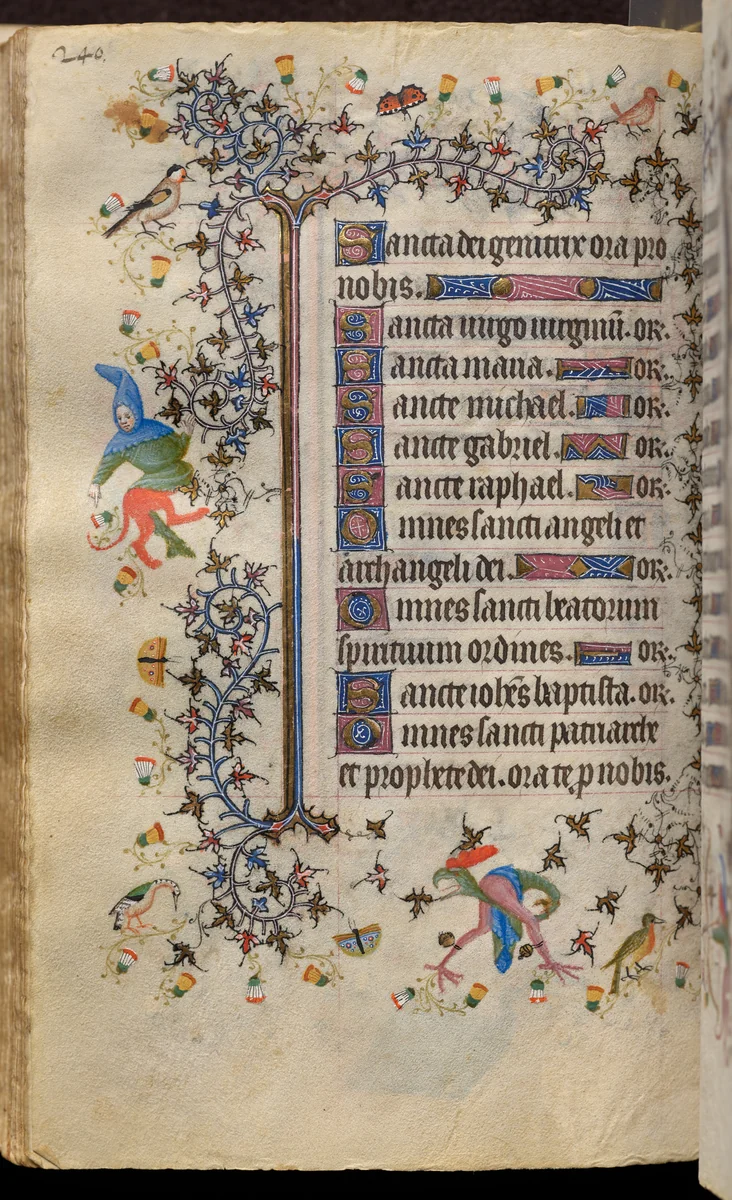 240.
Sancta dei genitrix ora pro
nobis.
Sancta uirgo uirginū. or.
Sancta maria. or.
Sancte michael. or.
Sancte gabriel. or.
Sancte raphael. or.
Omnes sancti angeli et
archangeli dei. or.
Omnes sancti beatorum
spirituum ordines. or.
Sancte ioh̄es baptista. or.
Omnes sancti patriarche
et prophete dei. orate p nobis.